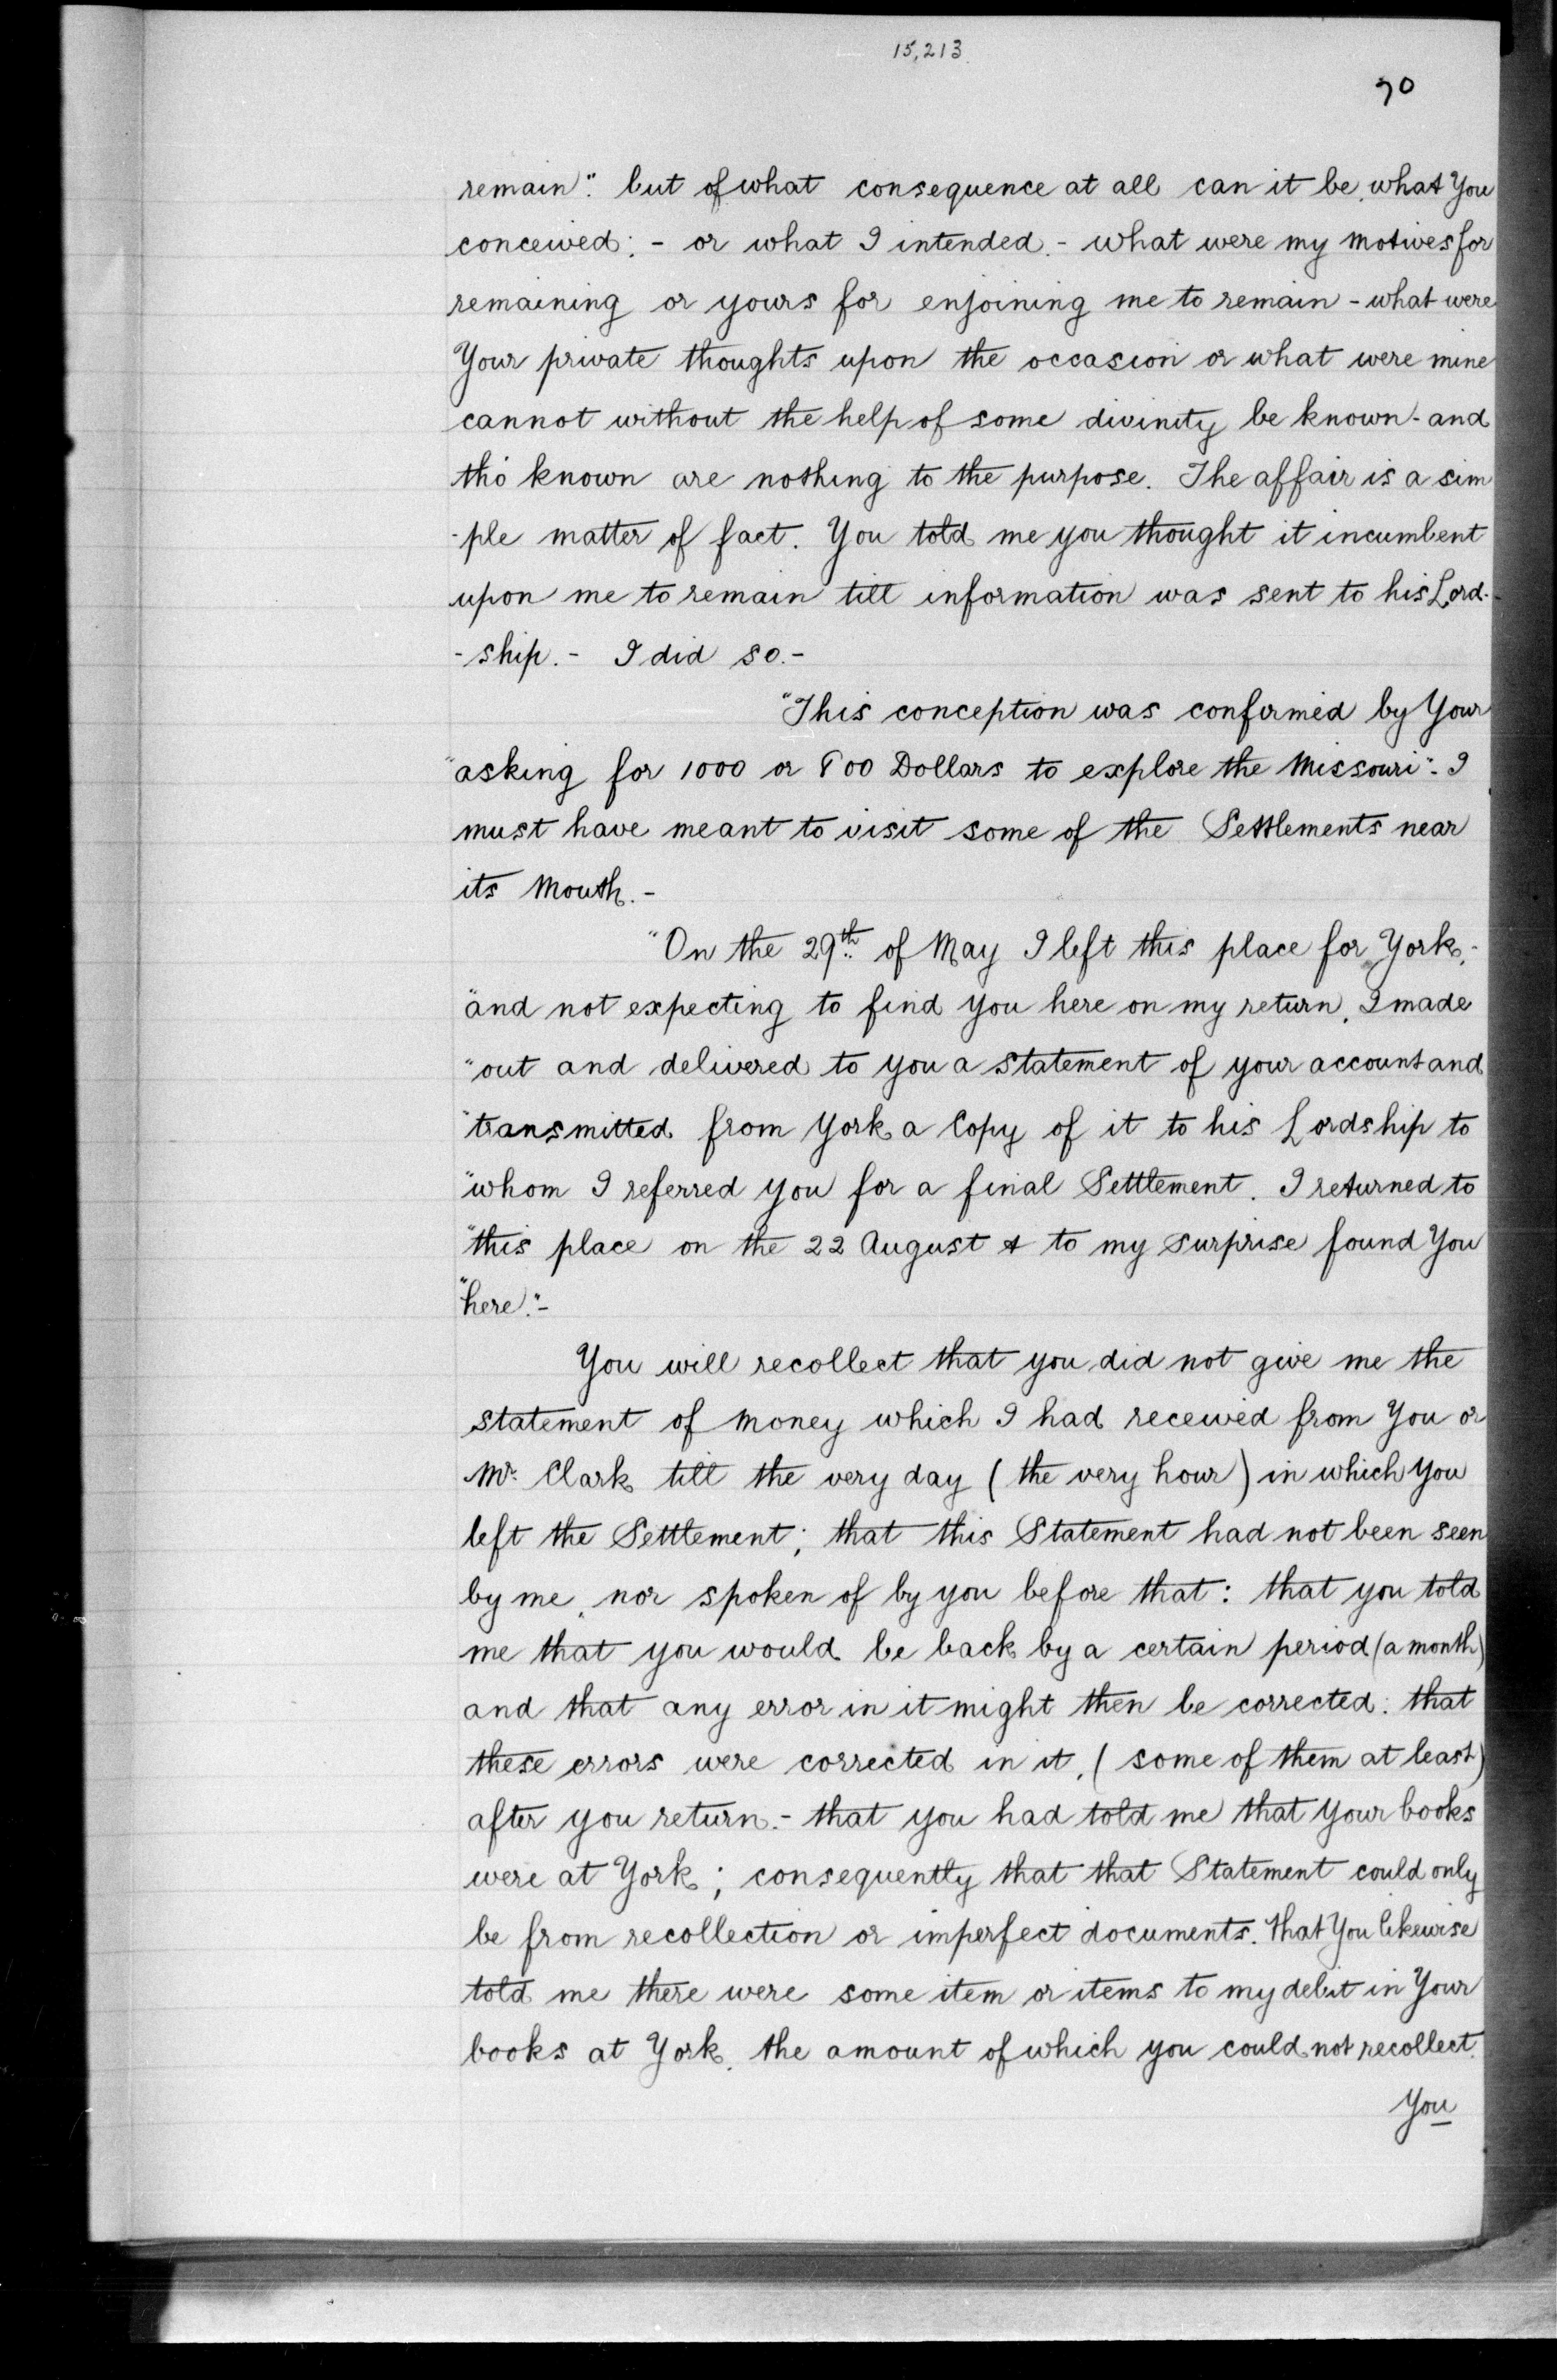 15,213.
70
remain". but of what consequence at all can it be, what You
conceived: - or what I intended. - what were my motives for
remaining or yours for enjoining me to remain - what were
Your private thoughts upon the occasion or what were mine
cannot without the help of some divinity be known - and
tho' known are nothing to the purpose. The affair is a sim
-ple matter of fact. You told me you thought it incumbent
upon me to remain till information was sent to his Lord-
-ship. - I did so. -
"This conception was confirmed by Your
"asking for 1000 or 800 Dollars to explore the Missouri". I
must have meant to visit some of the Settlements near
its Mouth. -
"On the 29th of May I left this place for York,
"and not expecting to find you here on my return, I made
"out and delivered to you a statement of your account and
"transmitted from York a Copy of it to his Lordship to
"whom I referred you for a final Settlement. I returned to
"this place on the 22 August & to my surprise found You
"here". -
You will recollect that you did not give me the
statement of money which I had received from You or
Mr. Clark till the very day (the very hour) in which You
left the Settlement; that this Statement had not been seen
by me, nor spoken of by you before that: that you told
me that you would be back by a certain period (a month)
and that any error in it might then be corrected: that
these errors were corrected in it, (some of them at least)
after you return. - that you had told me that your books
were at York; consequently that that Statement could only
be from recollection or imperfect documents. that You likewise
told me there were some item or items to my debit in Your
books at York, the amount of which you could not recollect.
You